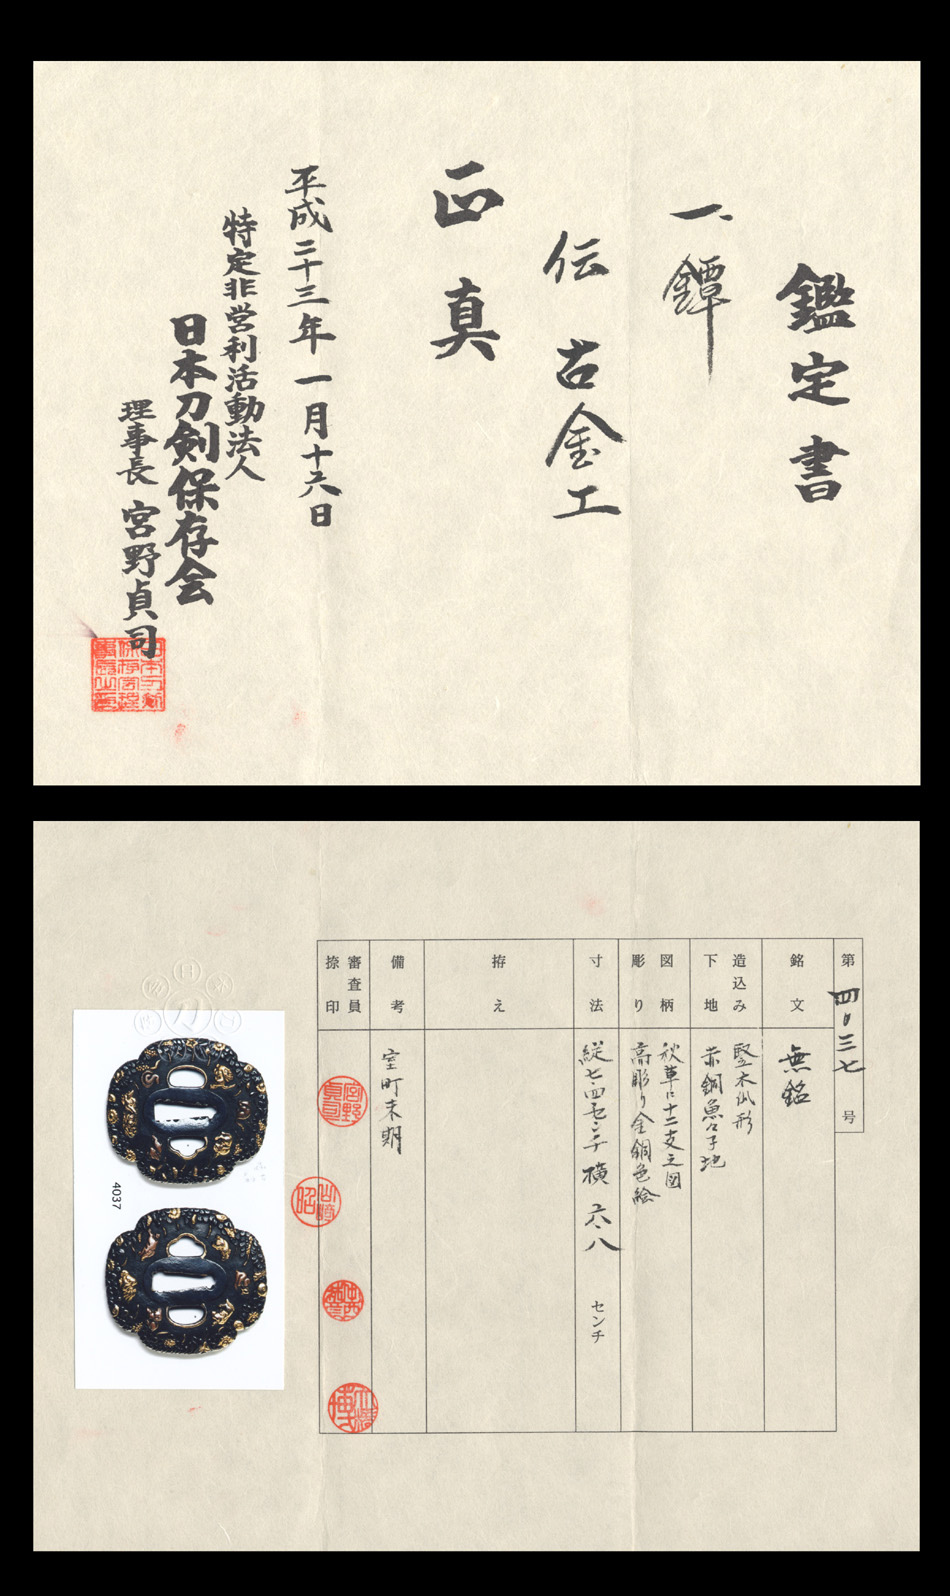 鑑定書
一、鐔
伝 古金工
正真
平成二十三年一月十六日
特定非営利活動法人
日本刀剣保存会
理事長 宮野貞司
第 四〇三七 号
銘文 無銘
造込み 竪木瓜形
下地 赤銅魚々子地
図柄 秋草に十二支之図
彫り 高彫り金銅色絵
寸法 縦七.四センチ 横 六.八 センチ
拵え
備考 室町末期
審査員
捺印
宮野貞司
4037